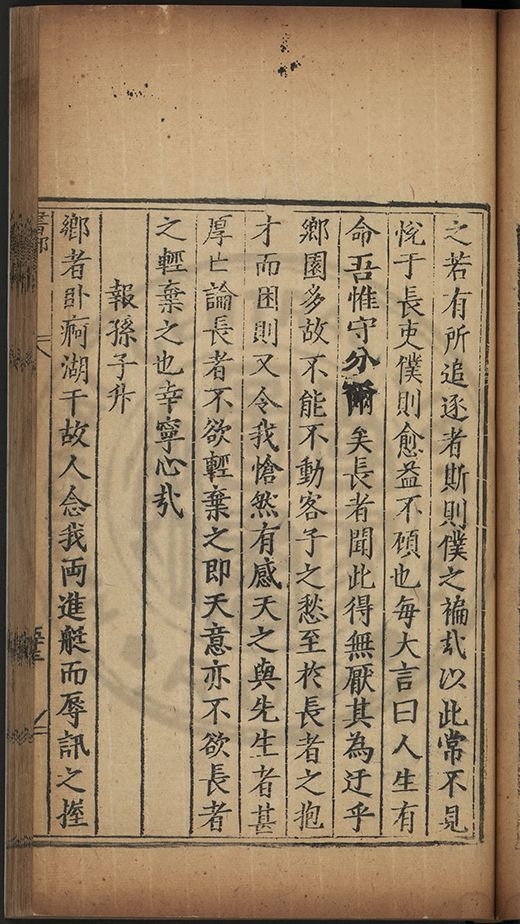 之若有所追逐者斯則僕之褊哉以此常不見
悅于長吏僕則愈益不頋也每大言曰人生有
命吾惟守分爾矣長者聞此得無厭其為迂乎
鄉園多故不能不動客子之愁至於長者之抱
才而困則又令我愴然有感天之與先生者甚
厚亡論長者不欲輕棄之即天意亦不欲長者
之輕棄之也幸寧心哉
報孫子舛
鄉者臥痾湖干故人念我両進艇而辱訊之握